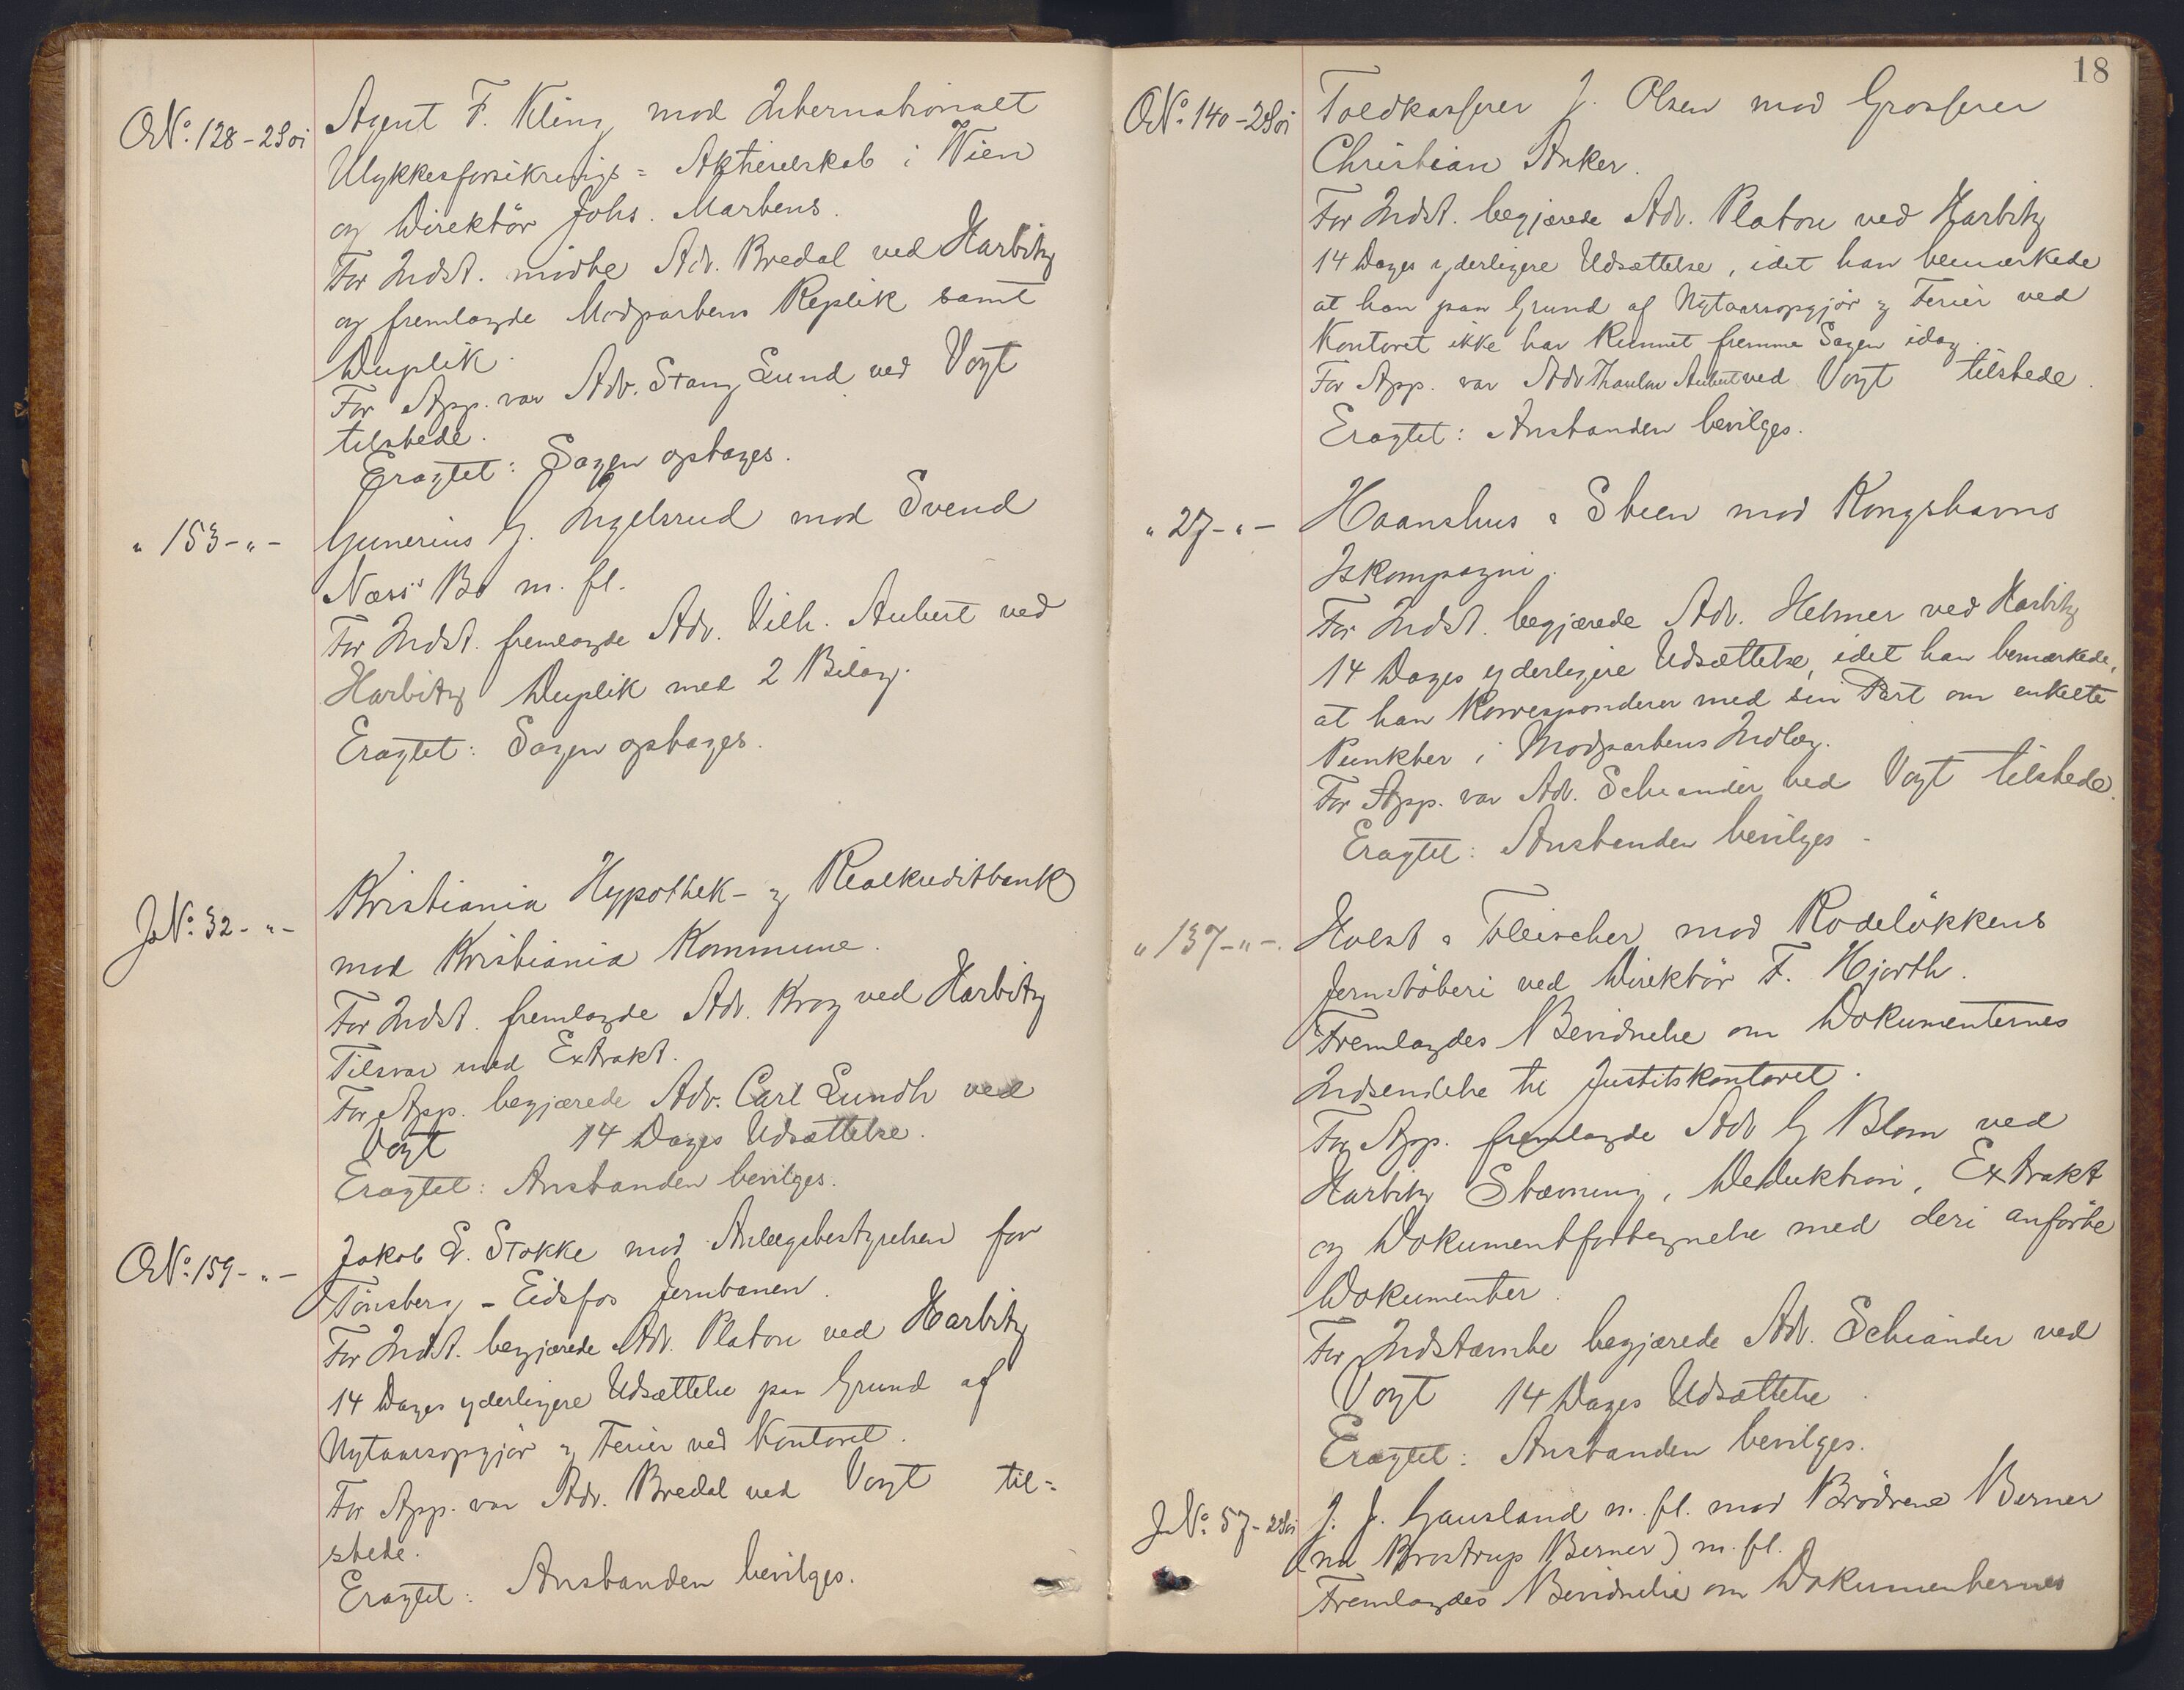 ON° 128-2Soi
Agent F. Kling mod Internationalt
Ulykkesforsikrings= Aktieselskab i Wien
og Direktör Johs. Martens.
For Indst. mödte Adv. Bredal ved Harbitz
og fremlagde Modpartens Replik samt
Duplik.
For App. var Adv. Stang Lund ved Vogt
tilstede.
Eragtet: Sagen optages.
" 153-"-
Gunerius G. Ingelsrud mod Svend
Næss' Bo m. fl.
For Indst. fremlagde Adv. Vilh. Aubert ved
Harbitz Duplik med 2 Bilag.
Eragtet: Sagen optages.
JN° 32-"-
Kristiania Hypothek- og Realkreditbank
mod Kristiania Kommune.
For Indst. fremlagde Adv. Krag ved Harbitz
Tilsvar med Extrakt.
For App. begjærede Adv. Carl Lundh ved
Vogt 14 Dages Udsættelse.
Eragtet: Anstanden bevilges.
ON° 159-"-
Jakob L. Stokke mod Anlægsbestyrelsen for
Tönsberg - Eidsfos Jernbanen.
For Indst. begjærede Adv. Platou ved Harbitz
14 Dages yderligere Udsættelse paa Grund af
Nytaarsopgjör og Ferier ved Kontoret.
For App. var Adv. Bredal ved Vogt til=
stede.
Eragtet: Anstanden bevilges.
18
ON° 140-2Soi
Toldkasserer J. Olsen mod Grosserer
Christian Anker.
For Indst. begjærede Adv. Platou ved Harbitz
14 Dages yderligere Udsættelse, idet han bemærkede
at han paa Grund af Nytaarsopgjör og Ferier ved
Kontoret ikke har kunnet fremme Sagen idag.
For App. var Adv Thaulow Aubert ved Vogt tilstede.
Eragtet: Anstanden bevilges.
" 27-"-
Haanshus & Steen mod Kongshavns
Iskompagni.
For Indst. begjærede Adv. Helmer ved Harbitz
14 Dages yderligere Udsættelse, idet han bemærkede,
at han korresponderer med sin Part om enkelte
Punkter i Modpartens Indlæg.
For App. var Adv. Schiander ved Vogt tilstede.
Eragtet: Anstanden bevilges -
" 137-"-.
Holst & Fleischer mod Rodelökkens
Jernstöberi ved Direktör F. Hjorth.
Fremlagdes Bevidnelse om Dokumenternes
Indsendelse til Justitskontoret.
For App. fremlagde Adv G Blom ved
Harbitz Stævning, Deduktion, Extrakt
og Dokumentfortegnelse med deri anförte
Dokumenter.
For Indstævnte begjærede Adv. Schiander ved
Vogt 14 Dages Udsættelse.
Eragtet: Anstanden bevilges.
JN° 57-2Soi
J. J. Gausland m. fl. mod Brödrene Berner
(nu Brostrup Berner) m. fl.
Fremlagdes Bevidnelse om Dokumenternes